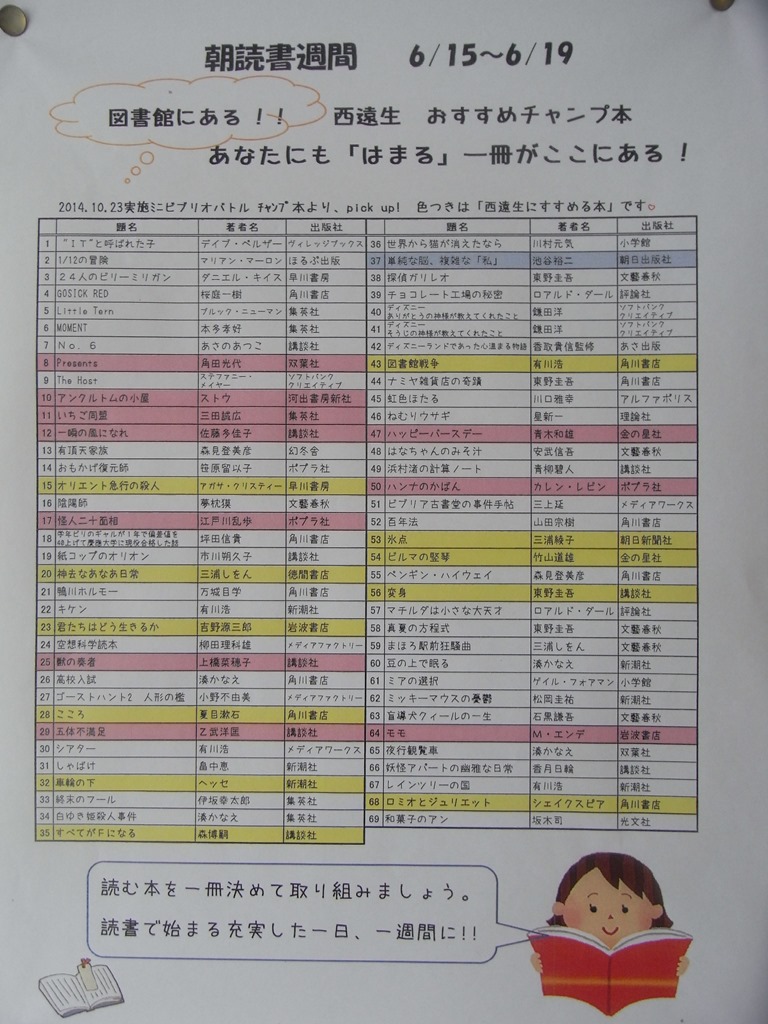 朝読書週間　6/15～6/19
図書館にある！！　西遠生　おすすめチャンプ本
あなたにも「はまる」一冊がここにある！
2014.10.23実施ミニビブリオバトル ﾁｬﾝﾌﾟ本より、pick up!　色つきは「西遠生にすすめる本」です♡
題名 著者名 出版社
1 "ＩＴ"と呼ばれた子 デイブ・ペルザー ヴィレッジブックス
2 1/12の冒険 マリアン・マーローン ほるぷ出版
3 ２４人のビリーミリガン ダニエル・キイス 早川書房
4 GOSICK RED 桜庭一樹 角川書店
5 Little Tern ブルック・ニューマン 集英社
6 MOMENT 本多孝好 集英社
7 Ｎｏ．６ あさのあつこ 講談社
8 Presents 角田光代 双葉社
9 The Host ステファニー・メイヤー ソフトバンククリエイティブ
10 アンクルトムの小屋 ストウ 河出書房新社
11 いちご同盟 三田誠広 集英社
12 一瞬の風になれ 佐藤多佳子 講談社
13 有頂天家族 森見登美彦 幻冬舎
14 おもかげ復元師 笹原留以子 ポプラ社
15 オリエント急行の殺人 アガサ・クリスティー 早川書房
16 陰陽師 夢枕獏 文藝春秋
17 怪人二十面相 江戸川乱歩 ポプラ社
18 学年ビリのギャルが１年で偏差値を40上げて慶應大学に現役合格した話 坪田信貴 角川書店
19 紙コップのオリオン 市川朔久子 講談社
20 神去なあなあ日常 三浦しをん 徳間書店
21 鴨川ホルモー 万城目学 角川書店
22 キケン 有川浩 新潮社
23 君たちはどう生きるか 吉野源三郎 岩波書店
24 空想科学読本 柳田理科雄 メディアファクトリー
25 獣の奏者 上橋菜穂子 講談社
26 高校入試 湊かなえ 角川書店
27 ゴーストハント2　人形の檻 小野不由美 メディアファクトリー
28 こころ 夏目漱石 角川書店
29 五体不満足 乙武洋匡 講談社
30 シアター 有川浩 メディアワークス
31 しゃばけ 畠中恵 新潮社
32 車輪の下 ヘッセ 新潮社
33 終末のフール 伊坂幸太郎 集英社
34 白ゆき姫殺人事件 湊かなえ 集英社
35 すべてがＦになる 森博嗣 講談社
題名 著者名 出版社
36 世界から猫が消えたなら 川村元気 小学館
37 単純な脳、複雑な「私」 池谷裕二 朝日出版社
38 探偵ガリレオ 東野圭吾 文藝春秋
39 チョコレート工場の秘密 ロアルド・ダール 評論社
40 ディズニーありがとうの神様が教えてくれたこと 鎌田洋 ソフトバンククリエイティブ
41 ディズニーそうじの神様が教えてくれたこと 鎌田洋 ソフトバンククリエイティブ
42 ディズニーランドであった心温まる物語 香取貴信監修 あさ出版
43 図書館戦争 有川浩 角川書店
44 ナミヤ雑貨店の奇蹟 東野圭吾 角川書店
45 虹色ほたる 川口雅幸 アルファポリス
46 ねむりウサギ 星新一 理論社
47 ハッピーバースデー 青木和雄 金の星社
48 はなちゃんのみそ汁 安武信吾 文藝春秋
49 浜村渚の計算ノート 青柳碧人 講談社
50 ハンナのかばん カレン・レビン ポプラ社
51 ビブリア古書堂の事件手帖 三上延 メディアワークス
52 百年法 山田宗樹 角川書店
53 氷点 三浦綾子 朝日新聞社
54 ビルマの竪琴 竹山道雄 金の星社
55 ペンギン・ハイウェイ 森見登美彦 角川書店
56 変身 東野圭吾 講談社
57 マチルダは小さな大天才 ロアルド・ダール 評論社
58 真夏の方程式 東野圭吾 文藝春秋
59 まほろ駅前狂騒曲 三浦しをん 文藝春秋
60 豆の上で眠る 湊かなえ 新潮社
61 ミアの選択 ゲイル・フォアマン 小学館
62 ミッキーマウスの憂鬱 松岡圭祐 新潮社
63 盲導犬クイールの一生 石黒謙吾 文藝春秋
64 モモ Ｍ・エンデ 岩波書店
65 夜行観覧車 湊かなえ 双葉社
66 妖怪アパートの幽雅な日常 香月日輪 講談社
67 レインツリーの国 有川浩 新潮社
68 ロミオとジュリエット シェイクスピア 角川書店
69 和菓子のアン 坂木司 光文社
読む本を一冊決めて取り組みましょう。
読書で始まる充実した一日、一週間に！！